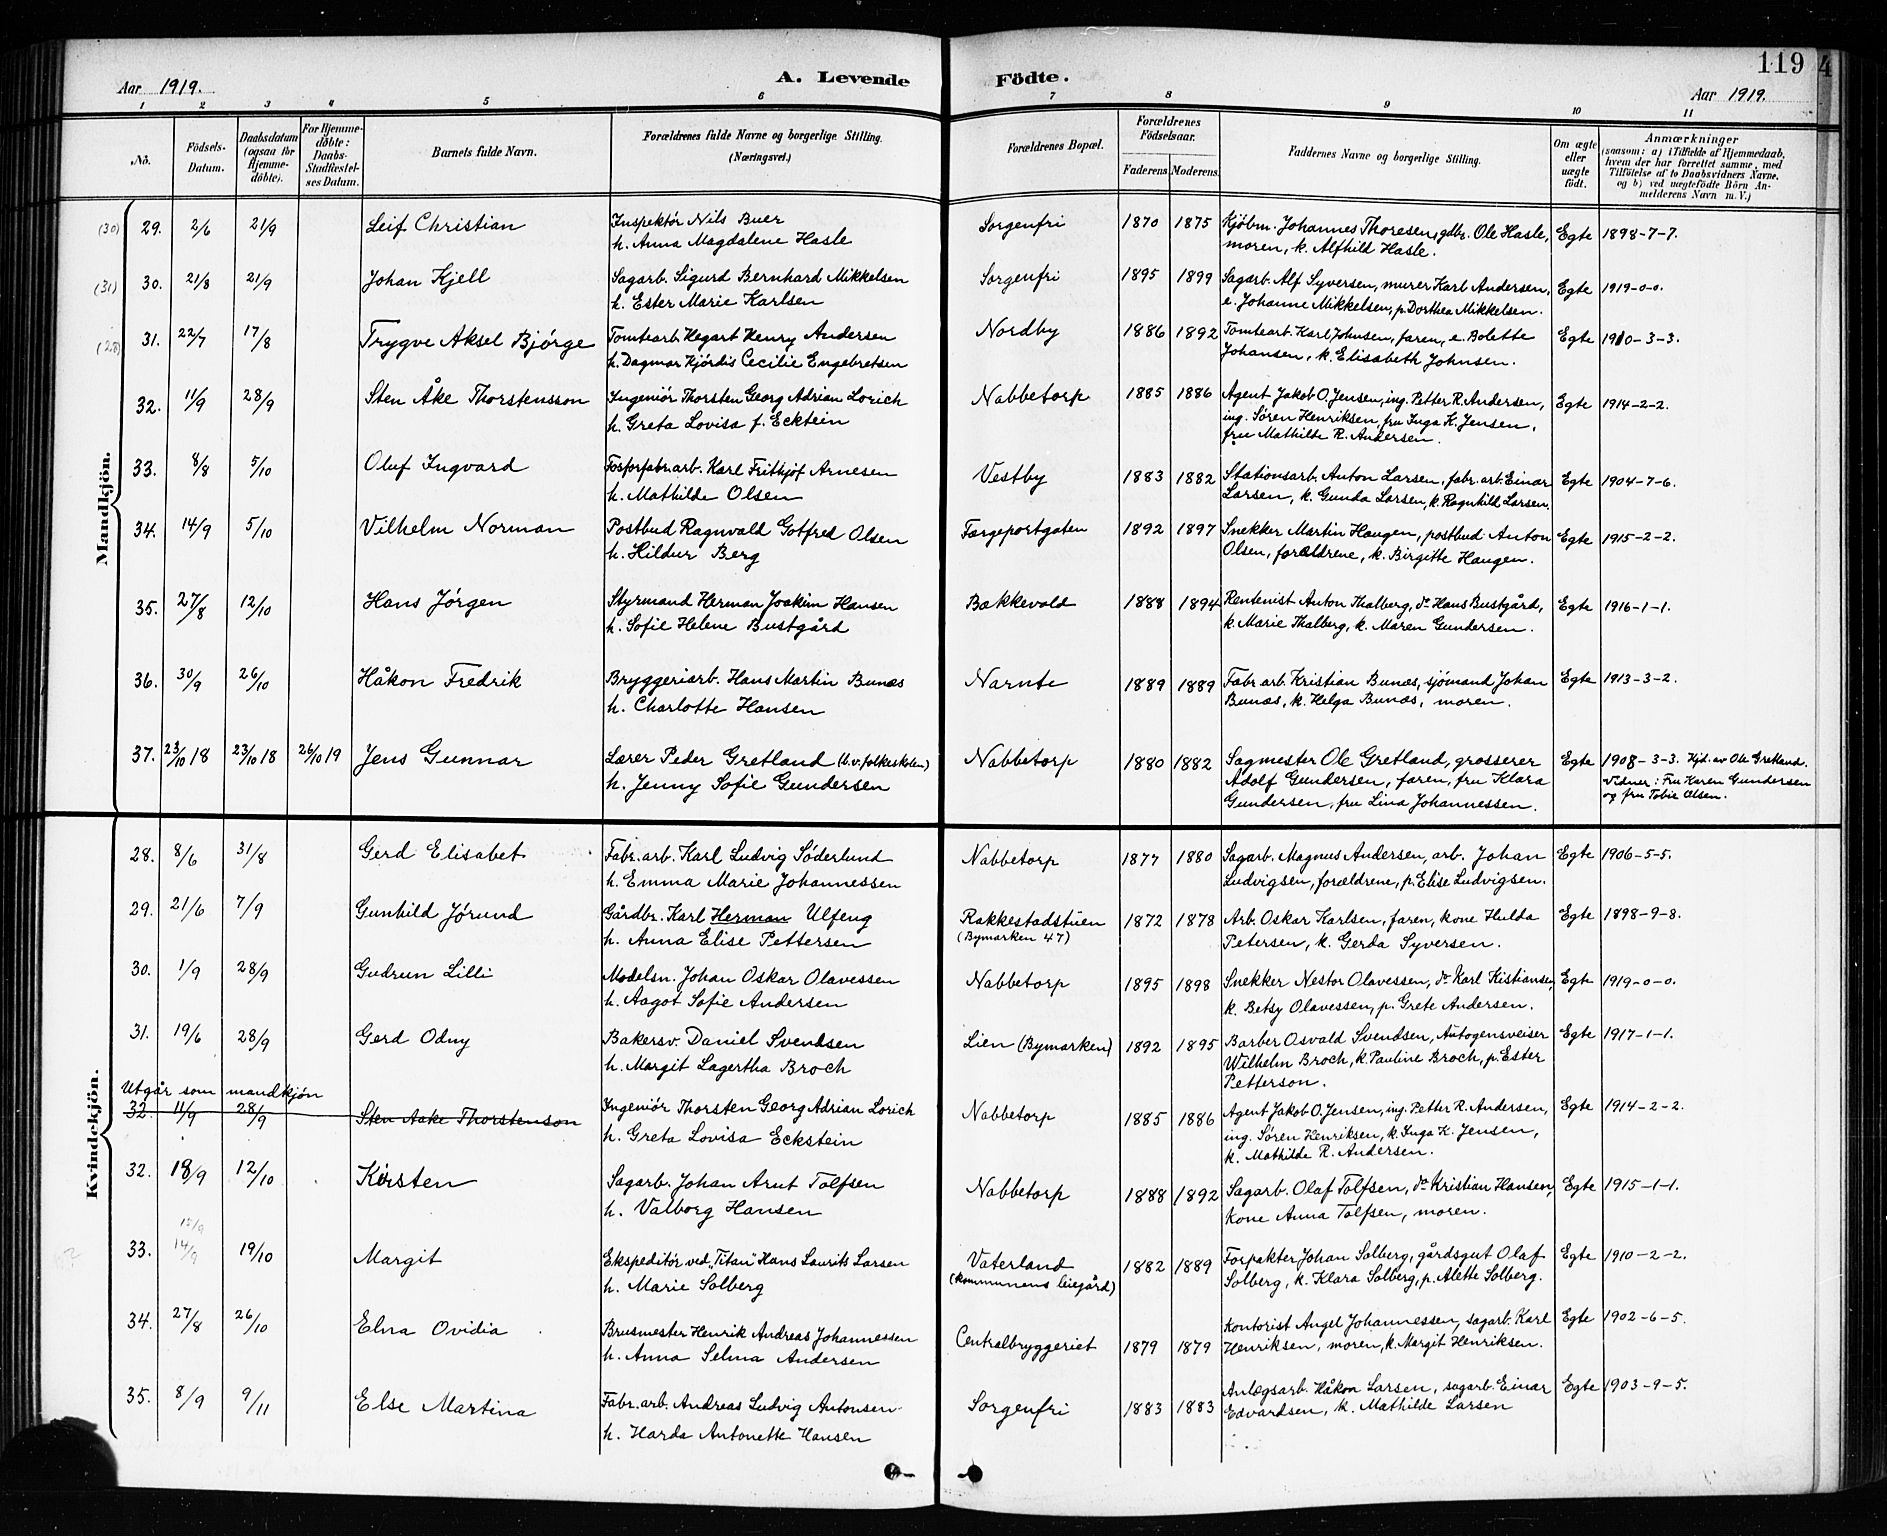 119
4
Aar 1919.
A. Levende Födte.
Aar 1919.
1 2 3 4 5 6 7 8 9 10 11
No.
Födsels-Datum.
Daabsdatum (ogsaa for Hjemme-döbte).
For Hjemme-döbte: Daabs-Stadfæstel-ses Datum.
Barnets fulde Navn.
Forældrenes fulde Navne og borgerlige Stilling.
(Næringsvei.)
Forældrenes Bopæl.
Forældrenes Födselsaar.
Faderens Moderens.
Faddernes Navne og borgerlige Stilling.
Om ægte eller uægte født.
Anmærkninger
(saasom: a) i Tilfælde af Hjemmedaab,
hvem der har forrettet samme, med
Tilföielse af to Daabsvidners Navne.
og b) ved uægtefödte Börn An-
melderens Navn m. V.)
Mandkjön.
(30) 29. 2/6 21/9 Leif Christian Inspektör Nils Buer Sorgenfri 1870 1875 Kjöbm. Johannes Thoresen, gdbr. Ole Hasle, Egte 1898-7-7.
h. Anna Magdalene Hasle moren, k. Alfhild Hasle.
(31) 30. 21/8 21/9 Johan Kjell Sagarb. Sigurd Bernhard Mikkelsen Sorgenfri 1895 1899 Sagarb. Alf Syversen, murer Karl Andersen, Egte 1919-0-0.
h. Ester Marie Karlsen e. Johanne Mikkelsen, p. Dorthea Mikkelsen.
(28) 31. 22/7 17/8 Trygve Aksel Bjørge Tomtearb. Hegart Henry Andersen Nordby 1886 1892 Tomtearb. Karl Johnsen, faren, e. Bolette Egte 1910-3-3.
h. Dagmar Hjördis Cecilie Engebretsen Johansen, k. Elisabeth Johnsen.
32. 11/9 28/9 Sten Åke Thorstensson Ingeniör Thorsten Georg Adrian Lorich Nabbetorp 1885 1886 Agent Jakob O. Jensen, ing. Petter R. Andersen, Egte 1914-2-2.
h. Greta Lovisa f. Ecktein ing. Sören Henriksen, fru Inga K. Jensen,
fru Mathilde R. Andersen.
33. 8/8 5/10 Oluf Ingvard Fosforfabr.arb. Karl Fritkjof Arnesen Vestby 1883 1882 Stationsarb. Anton Larsen, fabr. arb. Einar Egte 1904-7-6.
h. Mathilde Olsen Larsen, k. Gunda Larsen, k. Ragnhild Larsen.
34. 14/9 5/10 Vilhelm Norman Postbud Ragnvald Gotfred Olsen Færgeportgaten 1892 1897 Snekker Martin Haugen, postbud Anton Egte 1915-2-2.
h. Hildur Berg Olsen, forældrene, k. Birgitte Haugen.
35. 27/8 12/10 Hans Jörgen Styrmand Herman Joakim Hansen Bakkevold 1888 1894 Rentenist Anton Thalberg, do Hans Bustgård, Egte 1916-1-1.
h. Sofie Helene Bustgård k. Marie Thalberg, k. Maren Gundersen.
36. 30/9 26/10 Håkon Fredrik Bryggeriarb. Hans Martin Bunæs Narnte 1889 1889 Fabr. arb. Kristian Bunæs, sjömand Johan Egte 1913-3-2.
h. Charlotte Hansen Bunæs, k. Helga Bunæs, moren.
37. 23/10 18 23/10 18 26/10 19 Jens Gunnar Lærer Peder Gretland (l. v. folkeskolen) Nabbetorp 1880 1882 Sagmester Ole Gretland, grosserer Egte 1908-3-3. Hjd. av Ole Gretland.
h. Jenny Sofie Gundersen Adolf Gundersen, faren, fru Klara Vidner: Fru Karen Gundersen
Gundersen, fru Lina Johannessen. og fru Tobie Olsen.
Kvindekjön.
28. 8/6 31/8 Gerd Elisabet Fabr. arb. Karl Ludvig Söderlund Nabbetorp 1877 1880 Sagarb. Magnus Andersen, arb. Johan Egte 1906-5-5.
h. Emma Marie Johannessen Ludvigsen, forældrene, p. Elise Ludvigsen.
29. 21/6 7/9 Gunhild Jörund Gårdbr. Karl Herman Ulfeng Rakkestadstuen 1872 1878 Arb. Oskar Karlsen, faren, kone Hulda Egte 1898-9-8.
h. Anna Elise Pettersen (Bymarken 47) Petersen, k. Gerda Syversen.
30. 1/9 28/9 Gudrun Lilli Modelsn. Johan Oskar Olavessen Nabbetorp 1895 1898 Snekker Nestor Olavessen, do Karl Kistiansen, Egte 1919-0-0.
h. Aagot Sofie Andersen k. Betsy Olavessen, p. Grete Andersen.
31. 19/6 28/9 Gerd Odny Bakersv. Daniel Svendsen Lien (Bymarken) 1892 1895 Barber Osvald Svendsen, Autogensveiser Egte 1917-1-1.
h. Margit Lagertha Broch Wilhelm Broch, k. Pauline Broch, p. Ester
Petterson.
Utgår som mandkjön
32. 11/9 28/9 Sten Aake Thorstenson Ingeniör Thorsten Georg Adrian Lorich Nabbetorp 1885 1886 Agent Jakob O. Jensen, ing. Petter R. Andersen, Egte 1914-2-2.
h. Greta Lovisa Eckstein ing. Sören Henriksen, k. Inga K. Jensen,
k. Mathilde R. Andersen.
32. 18/9 12/10 Kirsten Sagarb. Johan Arnt Tolfsen Nabbetorp 1888 1892 Sagarb. Olaf Tolfsen, do Kristian Hansen, Egte 1915-1-1.
h. Valborg Hansen Kone Anna Tolfsen, moren.
15/9
33. 14/9 19/10 Margit Ekspeditör ved „Titan" Hans Laurits Larsen Vaterland 1882 1889 Forpakter Johan Solberg, gårdsgut Olaf Egte 1910-2-2.
h. Marie Solberg (kommunens leiegård) Solberg, k. Klara Solberg, p. Alette Solberg.
34. 27/8 26/10 Elna Ovidia Brusmester Henrik Andreas Johannessen Centralbryggeriet 1879 1879 Kontorist Angel Johannessen, sagarb. Karl Egte 1902-6-5.
h. Anna Selma Andersen Henriksen, moren, k. Margit Henriksen.
35. 8/9 9/11 Else Martina Fabr. arb. Andreas Ludvig Antonsen Sorgenfri 1883 1883 Anlægsarb. Håkon Larsen, sagarb. Einar Egte 1903-9-5.
h. Harda Antonette Hansen Edvardsen, k. Mathilde Larsen